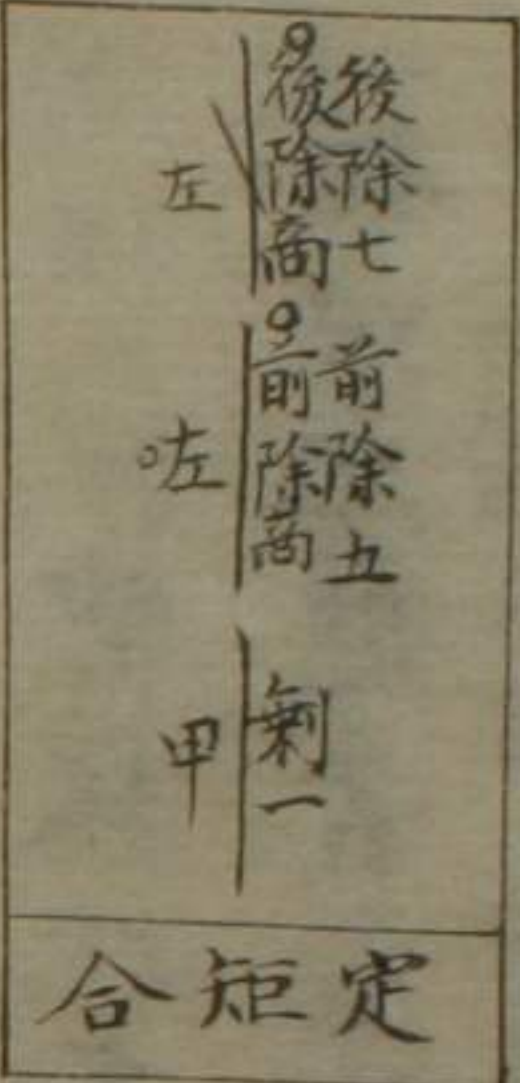 後除七
後除商
左
前除五
前除商
咗
剰一
甲
定矩合